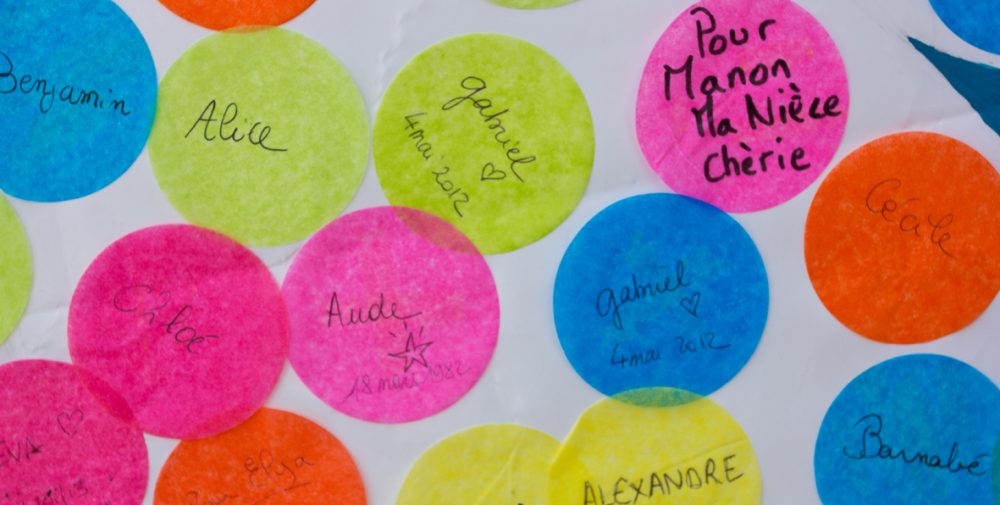 Benjamin
Alice
gabriel
4 mai 2012
Pour
Manon
Ma Nièce
Chèrie
Cécile
Chloé
Aude
18 mars 1982
gabriel
4 mai 2012
EVA
Elya
ALEXANDRE
Barnabé